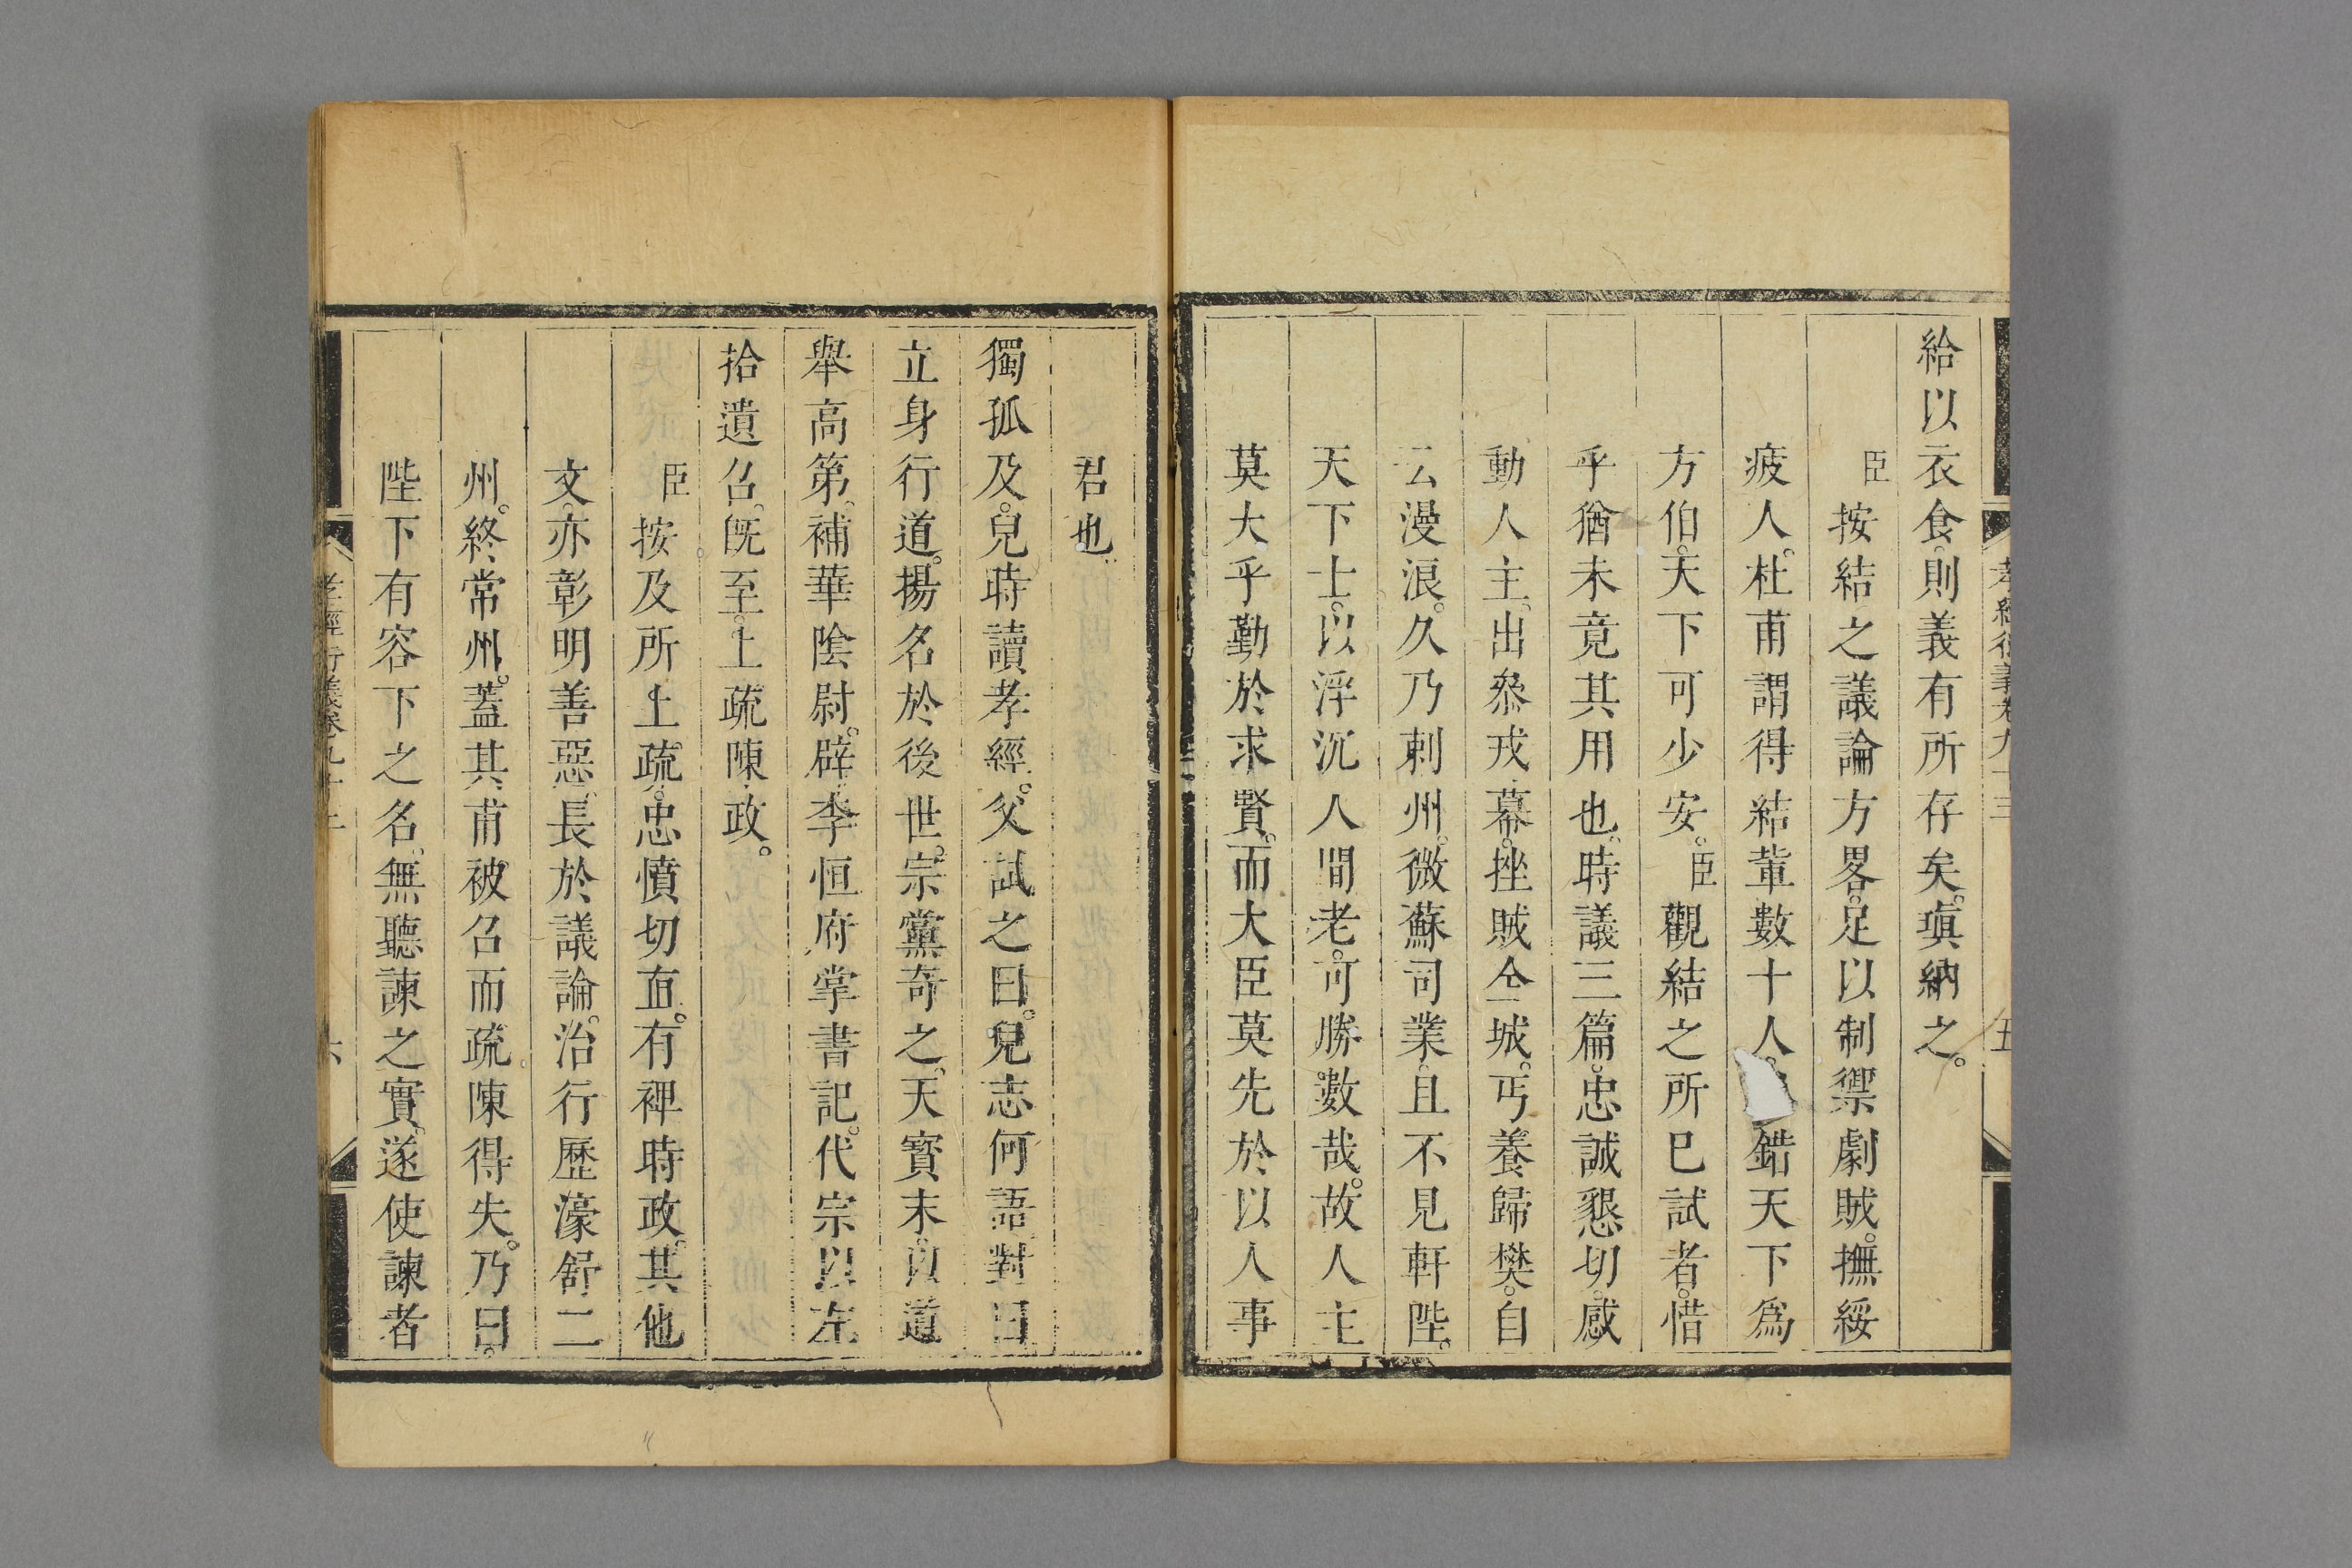 給以衣食。則義有所存矣。瑱納之。
臣按結之議論方畧。足以制禦劇賊。撫綏
疲人。杜甫謂得結輩數十人。錯天下爲
方伯。天下可少安。臣觀結之所已試者。惜
乎猶未竟其用也。時議三篇。忠誠懇切。感
動人主。出叅戎幕。挫賊全城。丐養歸樊。自
云漫浪。久乃刺州。微蘇司業。且不見軒陛。
天下士。以浮沉人間老。可勝數哉。故人主
莫大乎勤於求賢。而大臣莫先於以人事
君也。
獨孤及。兒時讀孝經。父試之曰。兒志何語。對曰
立身行道。揚名於後世。宗黨奇之。天寳末。以道
舉高第。補華陰尉。辟李恒府掌書記。代宗以左
拾遺召。旣至。上疏陳政。
臣按及所上疏。忠憤切直。有裨時政。其他
文。亦彰明善惡。長於議論。治行歷濠舒二
州。終常州。蓋其甫被召而疏陳得失。乃曰。
陛下有容下之名。無聽諫之實。遂使諫者